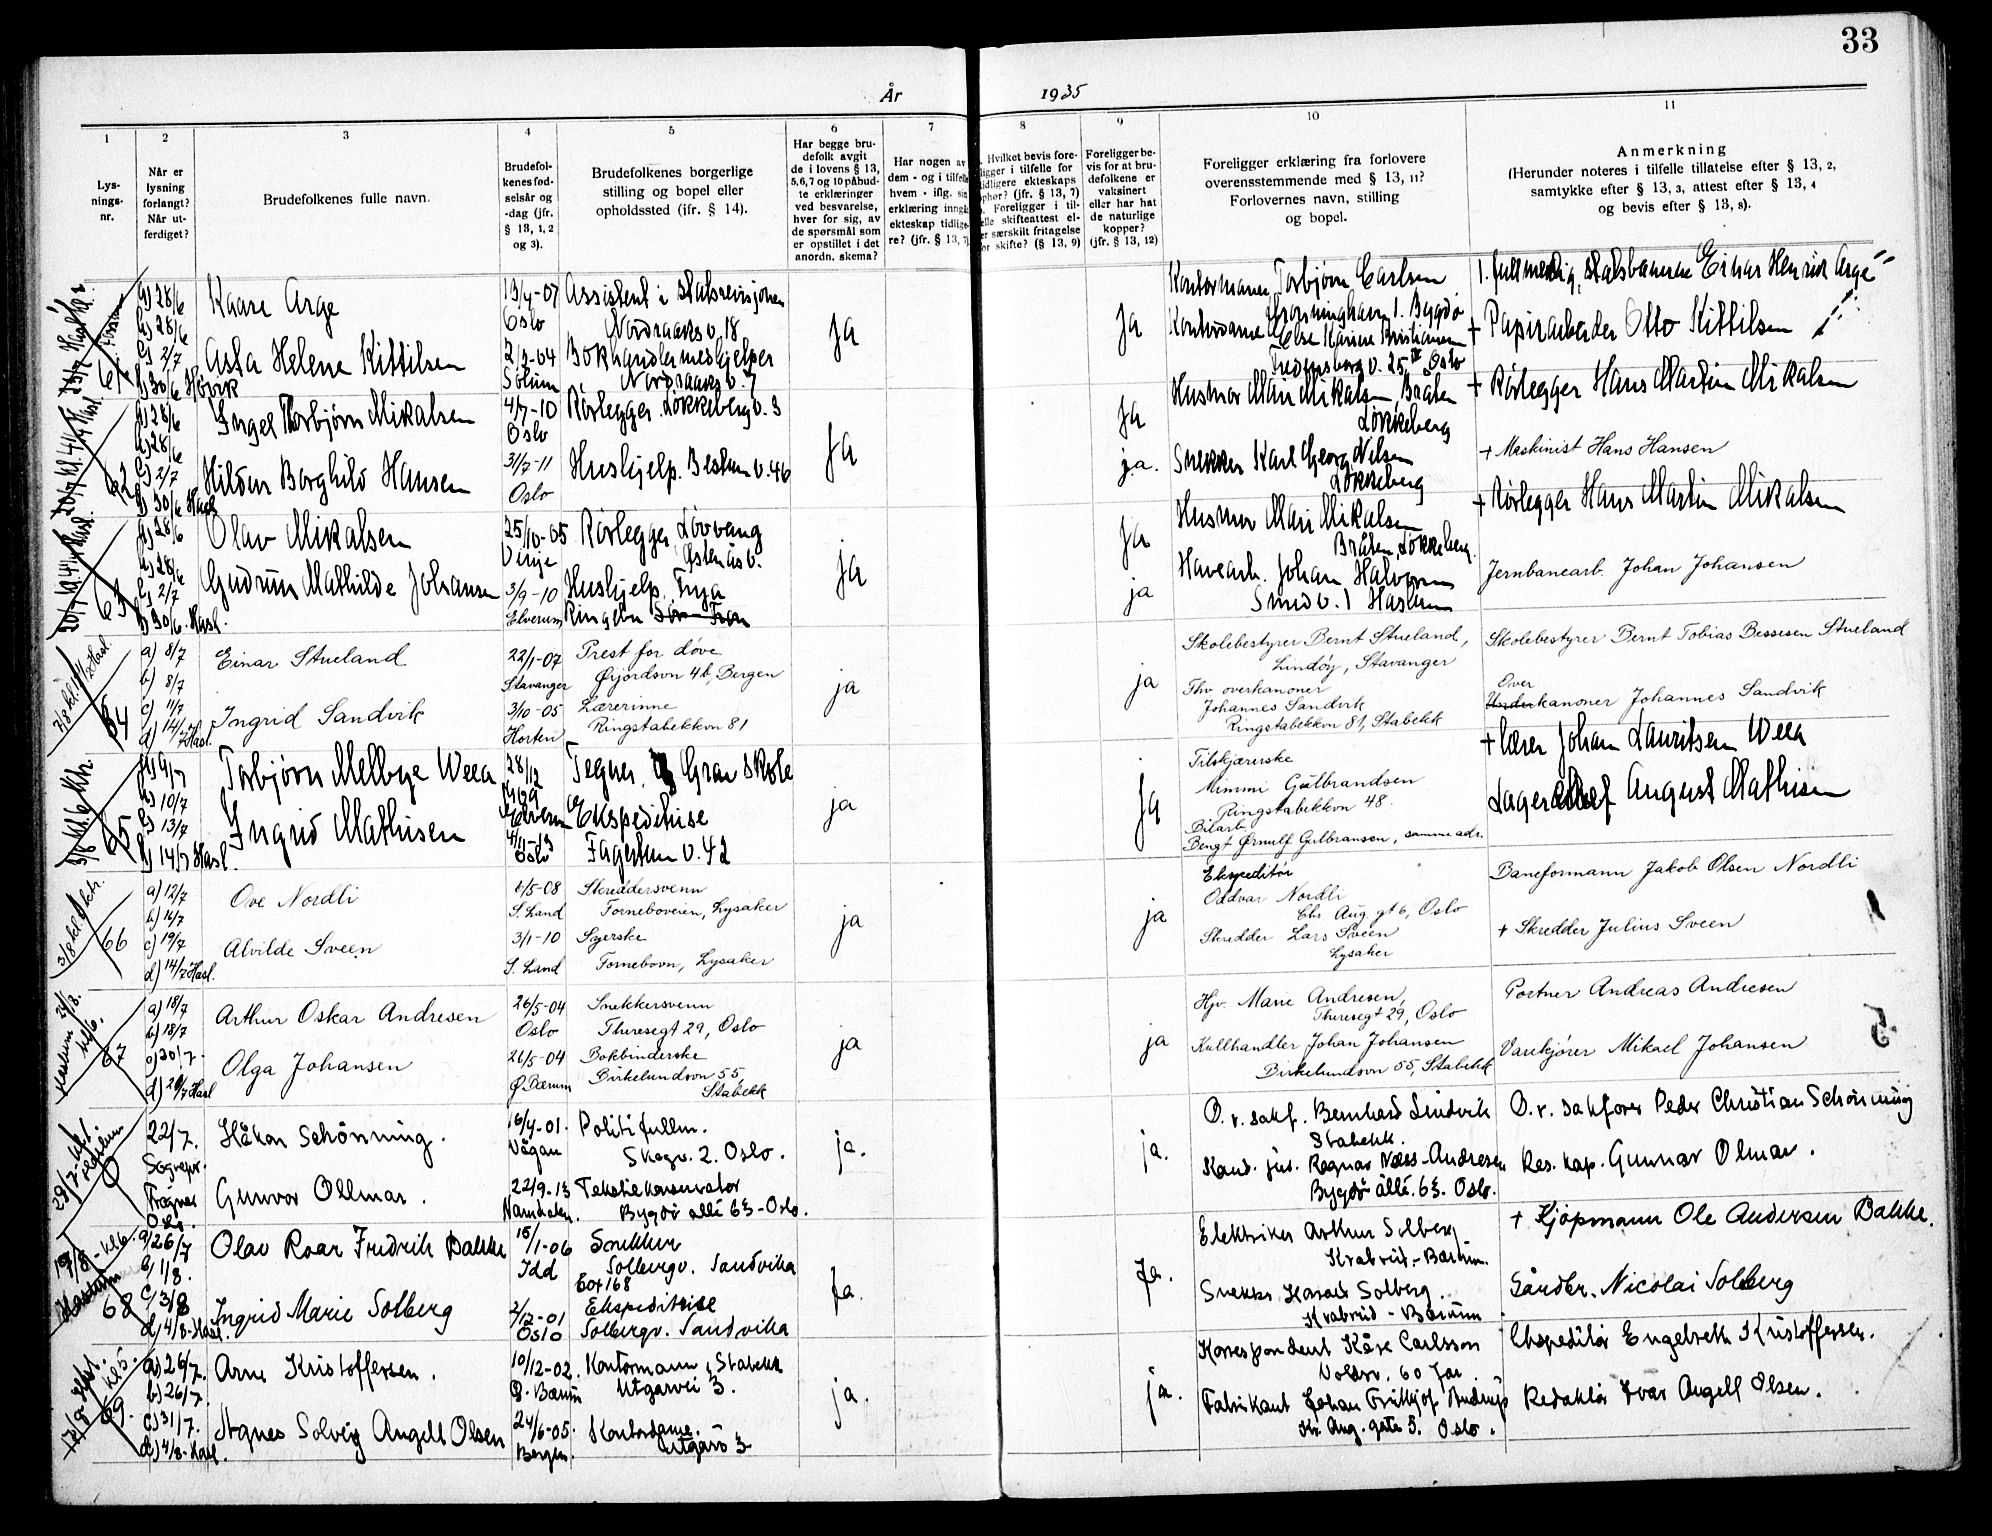 33
År 1935
1 2 3 4 5 6 7 8 9 10 11
Lys-
nings-
nr.
Når er
lysning
forlangt?
Når ut-
ferdiget?
Brudefolkenes fulle navn.
Brudefol-
kenes fød-
selsår og
-dag (jfr.
§ 13, 1, 2
og 3).
Brudefolkenes borgerlige
stilling og bopel eller
opholdssted (ifr. § 14).
Har begge bru-
defolk avgit
de i lovens § 13,
5,6,7 og 10 påbud-
te erklæringer
ved besvarelse,
hver for sig, av
de spørsmål som
er opstillet i det
anordn. skema?
Har nogen av
dem - og i tilfelle
hvem - iflg. sin
erklæring inngå
ekteskap tidlige-
re? (jfr. § 13, 7)
. Hvilket bevis fore-
ligger i tilfelle for
tidligere ekteskaps
ophør? (jfr. § 13, 7)
. Foreligger i til-
elle skifteattest el-
er særskilt fritagelse
or skifte? (§ 13, 9)
Foreligger be-
vis for at bru-
defolkene er
vaksinert
eller har hat
de naturlige
kopper?
(jfr. § 13, 12)
Foreligger erklæring fra forlovere
overensstemmende med § 13, 11?
Forlovernes navn, stilling
og bopel.
Anmerkning
(Herunder noteres i tilfelle tillatelse efter § 13, 2,
samtykke efter § 13, 3, attest efter § 13, 4
og bevis efter § 13, 8).
61
a) 28/6
b) 28/6
c) 2/7
d) 30/6 Høvik
Kaare Arge
13/4-07
Oslo
Assistent i statsrevisjonen
Nordraaks v. 18
Ja
Ja
Kontormann Torbjørn Carlsen
Dronninghavn 1. Bygdø
1. fullmektig, statsbanene Einar Henrik Arge
Asta Helene Kittilsen
2/3-04
Solum
Bokhandlermedhjelper
Nordraaks v. 7
Kontordame Else Karine Kristiansen
Fredensborg v. 25 IV Oslo
+ Papirarbeider Otto Kittilsen
20/7 kl. 4 1/4 Hasl.
62
a) 28/6
b) 28/6
c) 2/7
d) 30/6 Hasl
Ingel Torbjørn Mikalsen
4/7-10
Oslo
Rørlegger. Løkkeberg v. 3
Ja
Ja
Husmor Mari Mikalsen, Braaten
Løkkeberg
+ Rørlegger Hans Martin Mikalsen
Hildur Borghild Hansen
31/7-11
Oslo
Hushjelp. Bestum v. 46
ja.
Snekker Karl Georg Nilsen
Løkkeberg
+ Maskinist Hans Hansen
20/7 kl. 4 1/4 Hasl.
63
a) 28/6
b) 28/6
c) 2/7
d) 30/6. Hasl.
Olav Mikalsen
25/10-05
Vinje
Rørlegger Løvvang
Østenås v.
ja
Ja
Husmor Mari Mikalsen
Bråten, Løkkeberg.
+ Rørlegger Hans Martin Mikalsen
Gudrun Mathilde Johansen
3/9-10
Elverum
Hushjelp. Frya
Ringebu Sør-Fron
ja
Havearb. Johan Halvorsen
Smed v. 1 Haslum
Jernbanearb. Johan Johansen
64
a) 8/7
b) 8/7
c) 11/7
d) 14/7 Hasl.
Einar Stueland
22/1-07
Stavanger
Prest for døve
Ørjordsvn 4b, Bergen
ja
ja
Skolebestyrer Bernt Stueland,
Lindøy, Stavanger
Skolebestyrer Bernt Tobias Bessesen Stueland
Ingrid Sandvik
3/10-05
Horten
Lærerinne
Ringstabekkvn 81
Fhv overkanoner
Johannes Sandvik
Ringstabekkvn 81, Stabekk
Over
Underkanoner Johannes Sandvik
3/8 kl. 6 Ktr.
65
a) 9/7
b) 10/7
c) 13/7
d) 14/7 Hasl.
Torbjørn Melbye Weea
28/12
Elverum
Tegner, Gran skole
ja
Ja
Filskjærerske
Mimmi Gulbrandsen
Ringstabekkvn 48.
+ lærer Johan Lauritsen Weea
Ingrid Mathisen
4/11-13
Oslo
Ekspeditrise
Fagertun v. 42
Bilarb.
Bengt Ørnulf Gulbransen, samme adr.
Lagerchef August Mathisen
66
a) 12/7
b) 16/7
c) 19/7
d) 14/7 Hasl.
Ove Nordli
4/5-08
S. Land
Skreddersvenn
Forneboveien, Lysaker
ja
ja
Ekspeditør
Oddvar Nordli
Chr Aug. gt 6, Oslo
Baneformann Jakob Olsen Nordli
Alvilde Sveen
3/1-10
S. Land
Syerske
Fornebovn, Lysaker
Skredder Lars Sveen
Lysaker
+ Skredder Julius Sveen
67
a) 18/7
b) 18/7
c) 20/7.
d) 20/7 Hasl
Arthur Oskar Andresen
26/5-04
Oslo
Snekkersvenn
Theresegt 29, Oslo
ja
ja
Hjv. Marie Andresen,
Theresegt 29, Oslo
Portner Andreas Andresen
Olga Johansen
26/5-04
Ø Bærum
Bokbinderske
Birkelundsvn 55,
Stabekk
Kullhandler Johan Johansen
Birkelundsvn 55, Stabekk
Varekjører Mikael Johansen
0
22/7.
Sognepr.
Frogner
Oslo.
Håkon Schönning.
16/4-01.
Vågan
Politifullm.
Skogv. 2. Oslo.
ja.
ja.
O.r.sakf. Bernhard Lindvik
Stabekk.
O.r. sakfører Peder Christian Schönning
Gunvor Ollmar.
22/9-13
Namdalen.
Tekstilkonservator
Bygdø allé 63 - Oslo.
Kand. jur. Ragnar Næss-Andresen
Bygdø allé. 63. Oslo.
Res. kap. Gunnar Olmar.
17/8 - kl 6.
Haslum
68
a) 26/7
b) 1/8.
c) 3/8
d) 4/8-Hasl.
Olav Roar Fredrik Bakke
15/1-06
Idd
Snekker
Solbergv. Sandvika
Box 168
Ja.
Ja.
Elektriker Arthur Solberg
Krabrud - Bærum.
+ Kjøpmann Ole Andersen Bakke.
Ingrid Marie Solberg
2/12-01
Oslo
Ekspeditrise
Solbergv. Sandvika
Snekker Harald Solberg.
Krabrud - Bærum
Gårdbr. Nicolai Solberg
69.
a) 26/7.
b) 26/7.
c) 31/7.
d) 4/8-Hasl.
Arne Kristoffersen.
10/12-02.
Ø. Bærum
Kontormann, Stabekk
Utgårvei 3.
ja.
ja.
Korrespondent Kåre Carlsson
Voldsv. 60 Jar.
Ekspeditør Engebreth Kristoffersen.
Agnes Solveig Angell Olsen
24/6-05.
Bergen.
Kontordame.
Utgårv 3
Fabrikant Johan Fritjof
Kr. Aug. gate 5. Oslo.
Redaktør Ivar Angell Olsen.